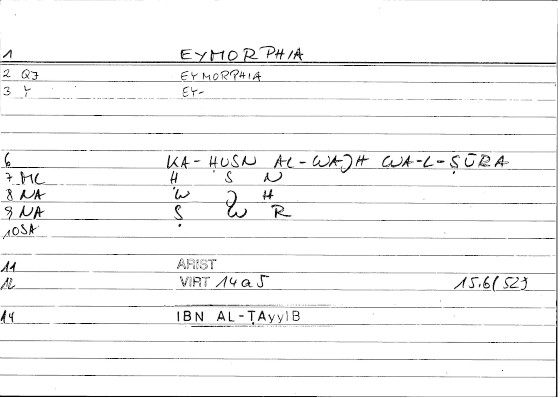 1 EYMORPHIA
2 QJ EYMORPHIA
3 Y EY-
6 KA-ḤUSN AL-WAJH WA-L-ṢŪRA
7 ML Ḥ S N
8 NA W J H
9 NA Ṣ W R
10 SA
11 ARIST
12 VIRT 14 a 5 15.6/
14 IBN AL-ṬAyyIB